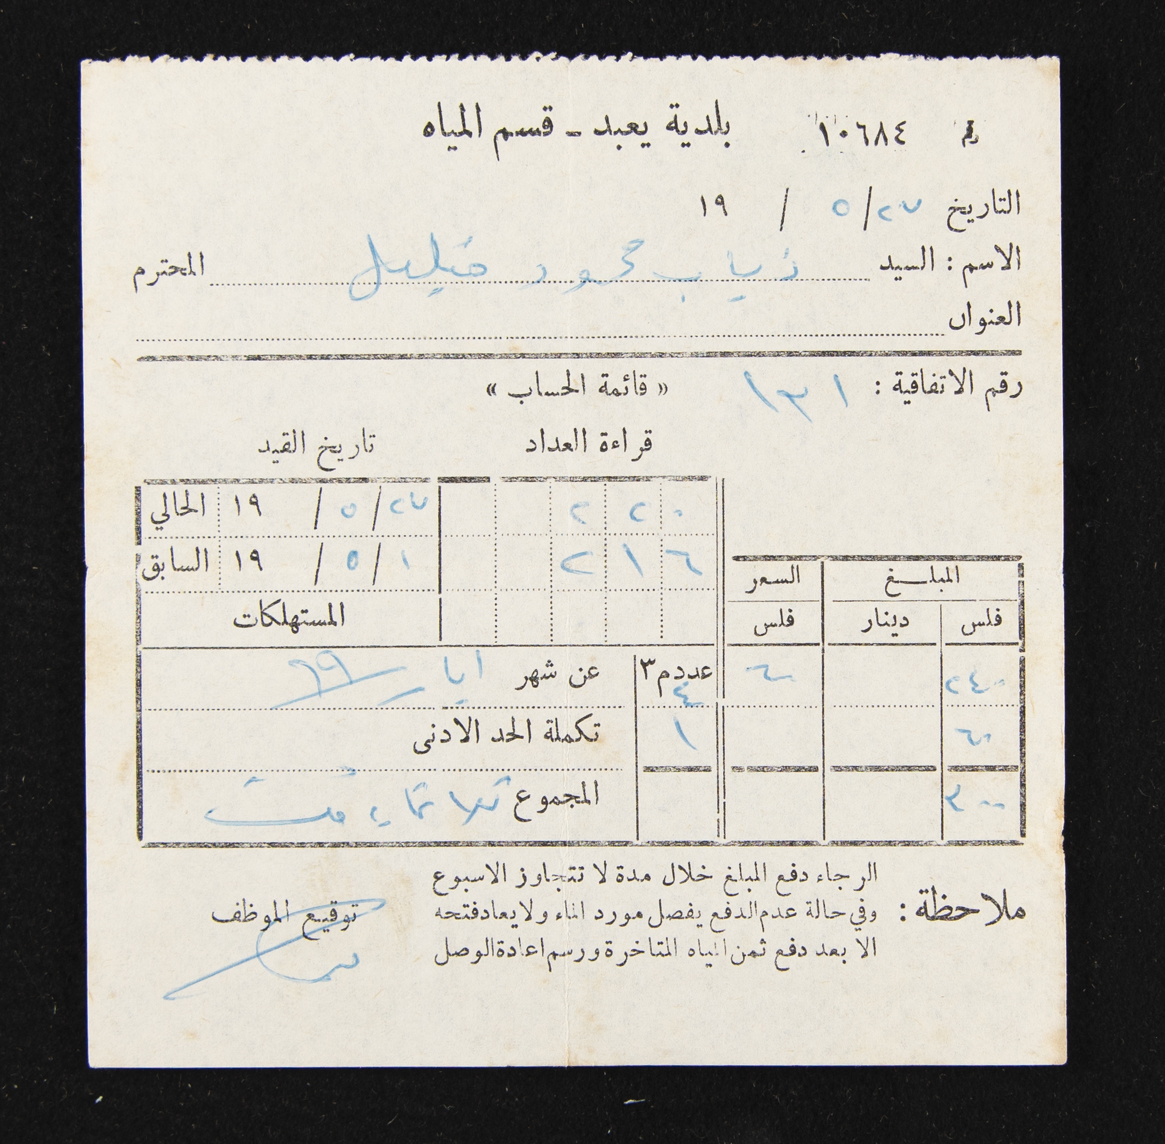 رقم ١٠٦٨٤
بلدية يعبد - قسم المياه
التاريخ ٢٧/ ٥ / ١٩
الاسم : السيد ذياب محمود خليل المحترم
العنوان
رقم الاتفاقية : ١٣١
« قائمة الحساب »
قراءة العداد تاريخ القيد
٢ ٢ ٠ ٢٧/ ٥ / ١٩ الحالي
٢ ١ ٦ ١/ ٥ / ١٩ السابق
المبلـــغ السعر
فلس دينار فلس المستهلكات
٢٤٠ ٦٠ عدد م٣ ٤ عن شهر ايار ٦٩
٦٠ ١ تكملة الحد الادنى
٣٠٠ المجموع ثلاثماية فلس
ملاحظة : الرجاء دفع المبلغ خلال مدة لا تتجاوز الاسبوع
وفي حالة عدم الدفع يفصل مورد الماء ولا يعاد فتحه
الا بعد دفع ثمن المياه المتاخرة ورسم اعادة الوصل
توقيع الموظف